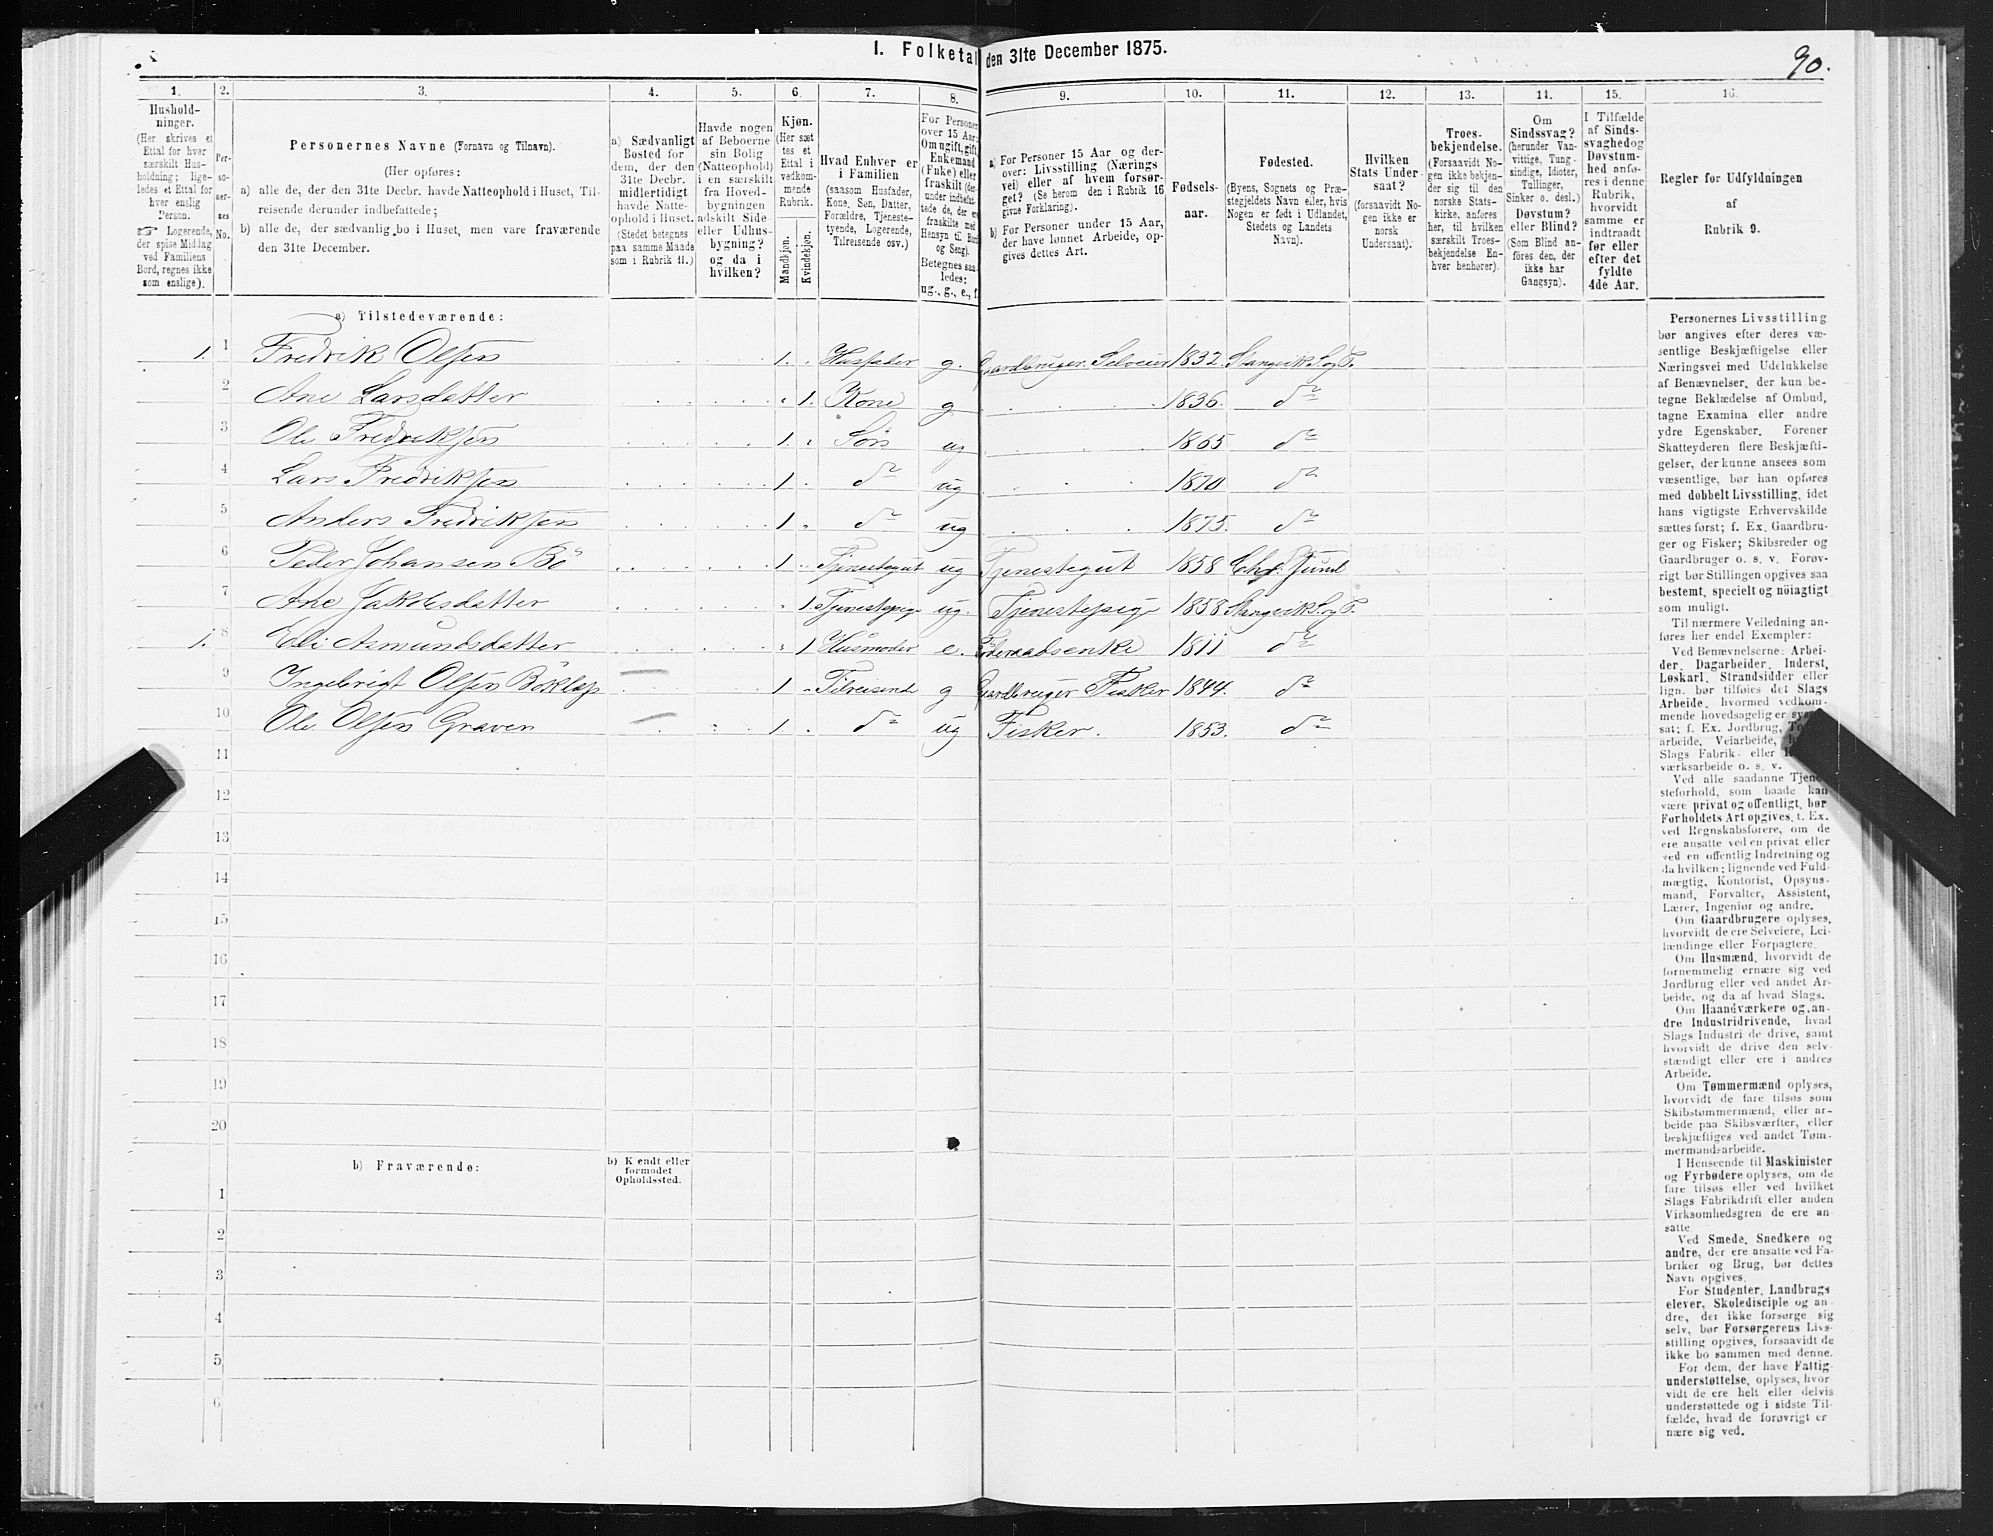 1. Folketal den 31te December 1875.
90.
1. 2. 3. 4. 5. 6. 7. 8. 9. 10. 11. 12. 13. 14. 15. 16.
Hushold-
ninger.
(Her skrives et
Ettal for hver
særskilt Hus-
holdning; lige-
ledes et Ettal for
hver enslig
Person.
☞ Logerende,
der spise Middag
ved Familiens
Bord, regnes ikke
som enslige).
Per-
so-
ner-
nes
No.
Personernes Navne (Fornavn og Tilnavn).
(Her opføres:
a) alle de, der den 31te Decbr. havde Natteophold i Huset, Til-
reisende derunder indbefattede;
b) alle de, der sædvanlig bo i Huset, men vare fraværende
den 31te December.
a) Sædvanligt
Bosted for
dem, der den
31te Decbr.
midlertidigt
havde Natte-
ophold i Huset.
(Stedet betegnes
paa samme Maade
som i Rubrik 11.)
Havde nogen
af Beboerne
sin Bolig
(Natteophold)
i en særskilt
fra Hoved-
bygningen
adskilt Side-
eller Udhus-
bygning?
og da i
hvilken?
Kjøn.
(Her sæt
tes et
Ettal i
vedkom-
mende
Rubrik.
Mandkjøn.
Kvindekjøn.
Hvad Enhver er
i Familien
(saasom Husfader,
Kone, Søn, Datter,
Forældre, Tjeneste-
tyende, Logerende,
Tilreisende osv.)
For Personer
over 15 Aar:
Om ugift, gift,
Enkemand
(Enke) eller
fraskilt (der-
under indbefat-
tede de, der er
fraskilte med
Hensyn til Bord
og Seng).
Betegnes saa-
ledes:
ug., g., e., f.
a) For Personer 15 Aar og der-
over: Livsstilling (Nærings-
vei) eller af hvem forsør-
get? (Se herom den i Rubrik 16
givne Forklaring).
b) For Personer under 15 Aar,
der have lønnet Arbeide, op-
gives dettes Art.
Fødsels-
aar.
Fødested.
(Byens, Sognets og Præ-
stegjeldets Navn eller, hvis
Nogen er født i Udlandet,
Stedets og Landets
Navn).
Hvilken
Stats Under-
saat?
(forsaavidt No-
gen ikke er
norsk
Undersaat).
Troes-
bekjendelse.
(Forsaavidt No-
gen ikke bekjen-
der sig til den
norske Stats-
kirke, anføres
her, til hvilken
særskilt Troes-
bekjendelse En-
hver henhører).
Om
Sindssvag?
(herunder Van-
vittige, Tung-
sindige, Idioter,
Tullinger,
Sinker o. desl.)
Døvstum?
eller Blind?
(Som Blind an-
føres den, der
ikke har
Gangsyn).
I Tilfælde
af Sinds-
svaghed og
Døvstum-
hed anfø-
res i denne
Rubrik,
hvorvidt
samme er
indtraadt
før eller
efter det
fyldte
4de Aar.
Regler for Udfyldningen
af
Rubrik 9.
a) Tilstedeværende:
1. 1 Fredrik Olsen 1. Husfader g. Gaardbruger. Selveier 1832. Stangvik S. og P.
2 Ane Larsdatter 1. Kone g 1836. do
3 Ole Fredriksen 1. Søn ug 1865. do
4 Lars Fredriksen 1 do ug 1870 do
5 Anders Fredriksen 1 do ug 1875. do
6 Peder Johansen Bö 1 Tjenestegut ug Tjenestegut 1858 Chr. Sund
7 Ane Jakobsdatter 1 Tjenestepige ug. Tjenestepige 1858 Stangvik S. og P.
1. 8 Eli Asmundsdatter 1 Husmoder e. Föderaadsenke 1811 do
9 Ingebrigt Olsen Böklep 1 Tilreisende g Gaardbruger Fisker 1844. do
10 Ole Olsen Graven 1. do ug Fisker. 1853. do
11
12
13
15
16
17
18
19
20
b) Fraværende:
b) Kendt eller
formodet
Opholdssted.
1
2
3
4
5
6
Personernes Livsstilling
bør angives efter deres væ-
sentlige Beskjæftigelse eller
Næringsvei med Udelukkelse
af Benævnelser, der kun be-
tegne Beklædelse af Ombud,
tagne Examina eller andre
ydre Egenskaber. Forener
Skatteyderen flere Beskjæfti-
gelser, der kunne ansees som
væsentlige, bør han opføres
med dobbelt Livsstilling, idet
hans vigtigste Erhvervskilde
sættes først; f. Ex. Gaardbru-
ger og Fisker; Skibsreder og
Gaardbruger o. s. v. Forøv-
rigt bør Stillingen opgives saa
bestemt, specielt og nöiagtigt
som muligt.
Til nærmere Veiledning an-
føres her endel Exempler:
Ved Benævnelserne: Arbei-
der, Dagarbeider, Inderst,
Løskarl, Strandsidder eller
lign. bør tilføies det Slags
Arbeide, hvormed vedkom-
mende hovedsagelig er
sat; f. Ex. Jordbrug,
arbeide, Veiarbeide,
Slags Fabrik- eller
værksarbeide o. s. v.
Ved alle saadanne Tjene-
steforhold, som baade kan
være privat og offentligt, bør
Forholdets Art opgives, t. Ex.
ved Regnskabsførere, om de
ere ansatte ved en privat eller
ved en offentlig Indretning og
da hvilken; lignende ved Fuld-
mægtig, Kontorist, Opsyns-
mand, Forvalter, Assistent,
Lærer, Ingeniør og andre.
Om Gaardbrugere oplyses,
hvorvidt de ere Selveiere, Lei-
lændinge eller Forpagtere.
Om Husmænd, hvorvidt de
fornemmelig ernære sig ved
Jordbrug eller ved andet Ar-
beide, og da af hvad Slags.
Om Haandværkere og an-
dre Industridrivende, hvad
Slags Industri de drive, samt
hvorvidt de drive den selv-
stændigt eller ere i andres
Arbeide.
Om Tømmermænd oplyses,
hvorvidt de fare tilsøs som
Skibstømmermænd, eller ar-
beide paa Skibsværfter, eller
beskjæftiges ved andet Tøm-
mermandsarbeide.
I Henseende til Maskinister
og Fyrbødere oplyses, om de
fare tilsøs eller ved hvilket
Slags Fabrikdrift eller anden
Virksomhedsgren de ere an-
satte.
Ved Smede, Snedkere og
andre, der ere ansatte ved Fa-
briker og Brug, bør dettes
Navn opgives.
For Studenter, Landbrugs-
elever, Skoledisciple og an-
dre, der ikke forsørge sig
selv, bør Forsørgerens Livs-
stilling opgives, forsaavidt de
ikke bo sammen med denne.
For dem, der have Fattig-
understøttelse, oplyses, hvor-
vidt de ere helt eller delvis
understøttede og i sidste Til-
fælde, hvad de forøvrigt er-
nære sig ved.